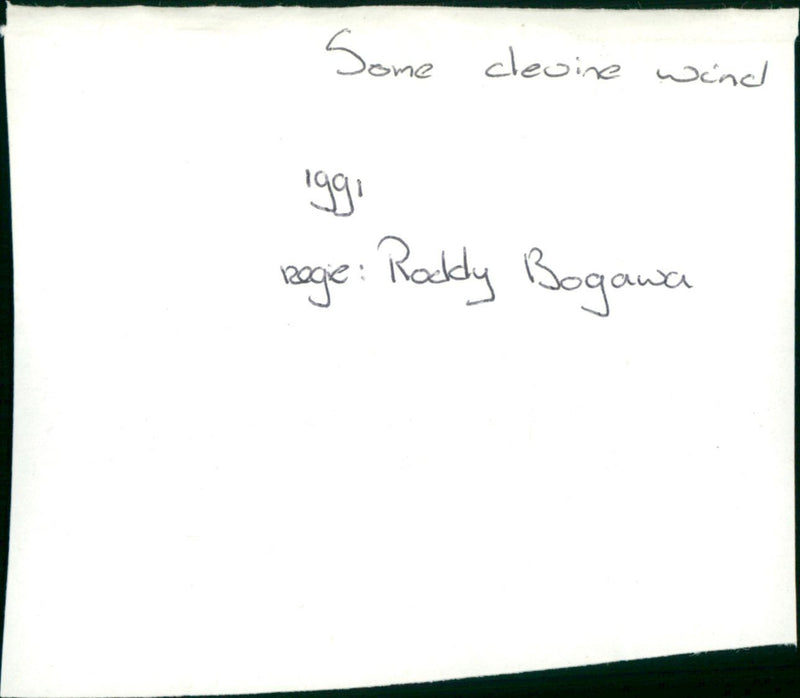 Some devine wind
1991
regie: Roddy Bogawa